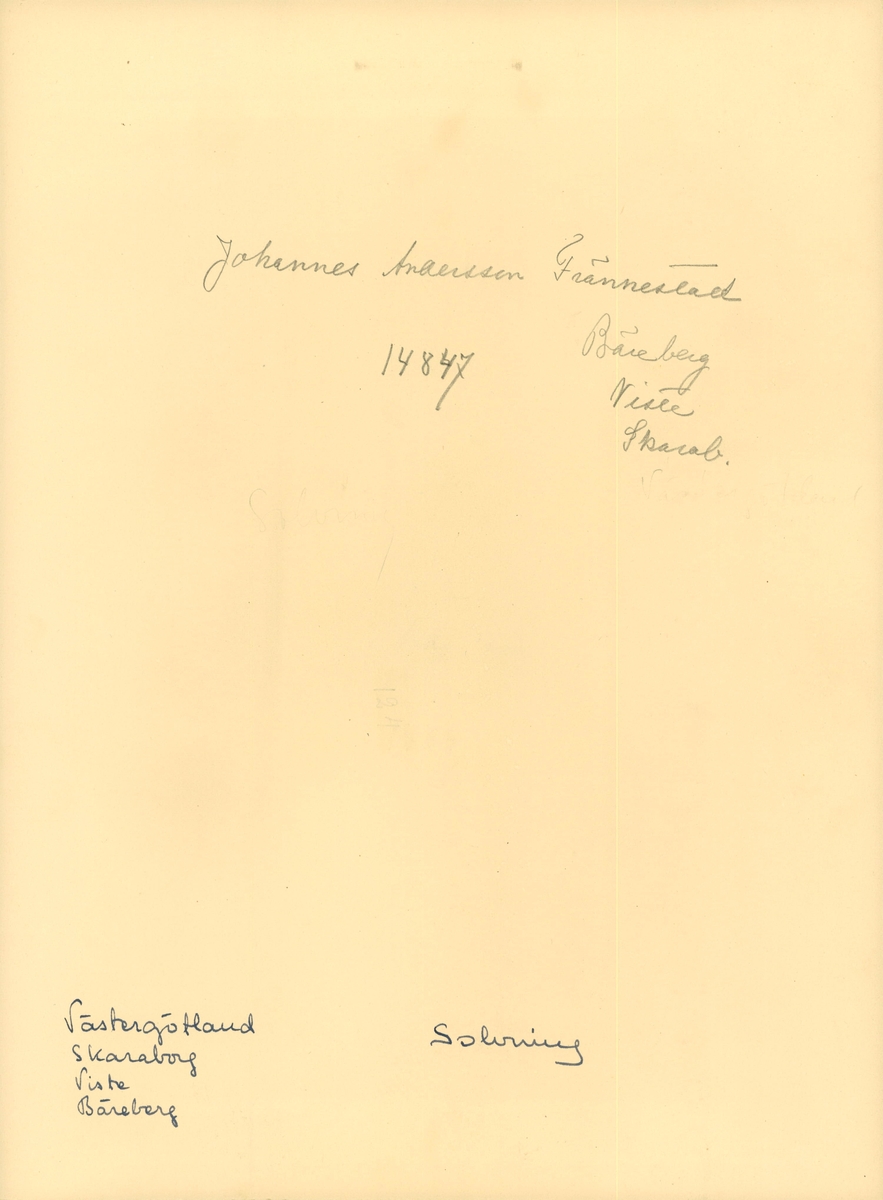 Johannes Andersson Frännestad
14847
Bäreberg
Viste
Skarab.
Västergötland
Skaraborg
Viste
Bäreberg
Solvning